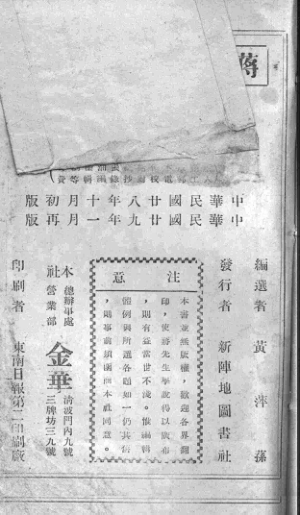 蔣
中華民國廿八年十月初版
中華民國廿九年一月再版
編選者 黃萍蓀
發行者 新陣地圖書社
注意
本書並無版權，歡迎各界翻
印，使蔣先生事蹟得以流布
，則有益當世不淺。惟編輯
體例與所選各題如一仍其舊
，則事前請函商本社同意。
本社 總辦事處 金華 清波門內九號
營業部 三牌坊三九號
印刷者 東南日報第二印刷廠